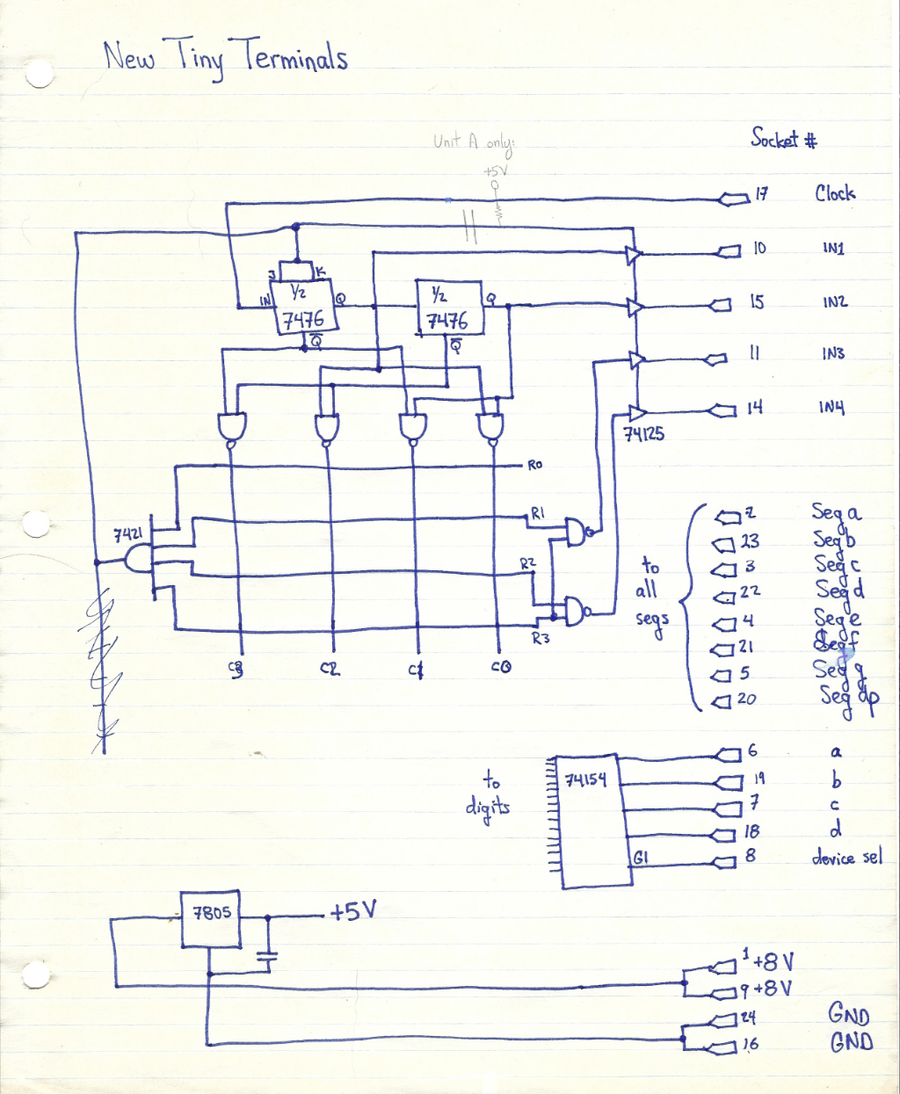 New Tiny Terminals
Unit A only:
+5V
Socket #
17 Clock
10 IN1
15 IN2
11 IN3
14 IN4
J K
IN 1/2 7476 Q
Q̅
1/2 7476 Q
Q̅
74125
R0
7421
R1
R2
R3
C3 C2 C1 C0
to all segs
2 Seg a
23 Seg b
3 Seg c
22 Seg d
4 Seg e
21 Seg f
5 Seg g
20 Seg dp
to digits
74154
G1
6 a
19 b
7 c
18 d
8 device sel
7805
+5V
1 +8V
9 +8V
24 GND
16 GND